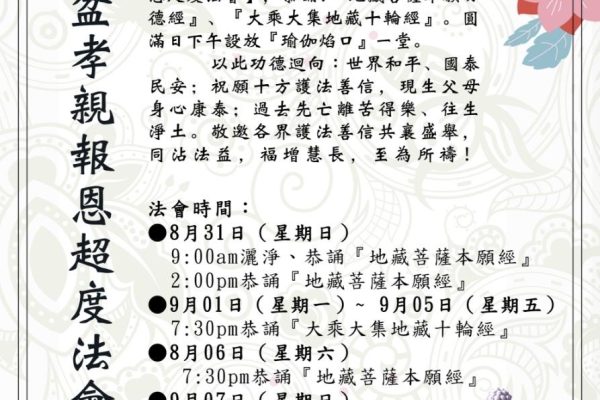 盆孝親報恩超度法會
德經』、『大乘大集地藏十輪經』。圓
滿日下午設放『瑜伽焰口』一堂。
以此功德迴向：世界和平、國泰
民安；祝願十方護法善信，現生父母
身心康泰；過去先亡離苦得樂、往生
淨土。敬邀各界護法善信共襄盛舉，
同沾法益，福增慧長，至為所禱！
法會時間：
●8月31日（星期日）
9:00am灑淨、恭誦『地藏菩薩本願經』
2:00pm恭誦『地藏菩薩本願經』
●9月01日（星期一）~ 9月05日（星期五）
7:30pm恭誦『大乘大集地藏十輪經』
●8月06日（星期六）
7:30pm恭誦『地藏菩薩本願經』
●9月07日（星期日）